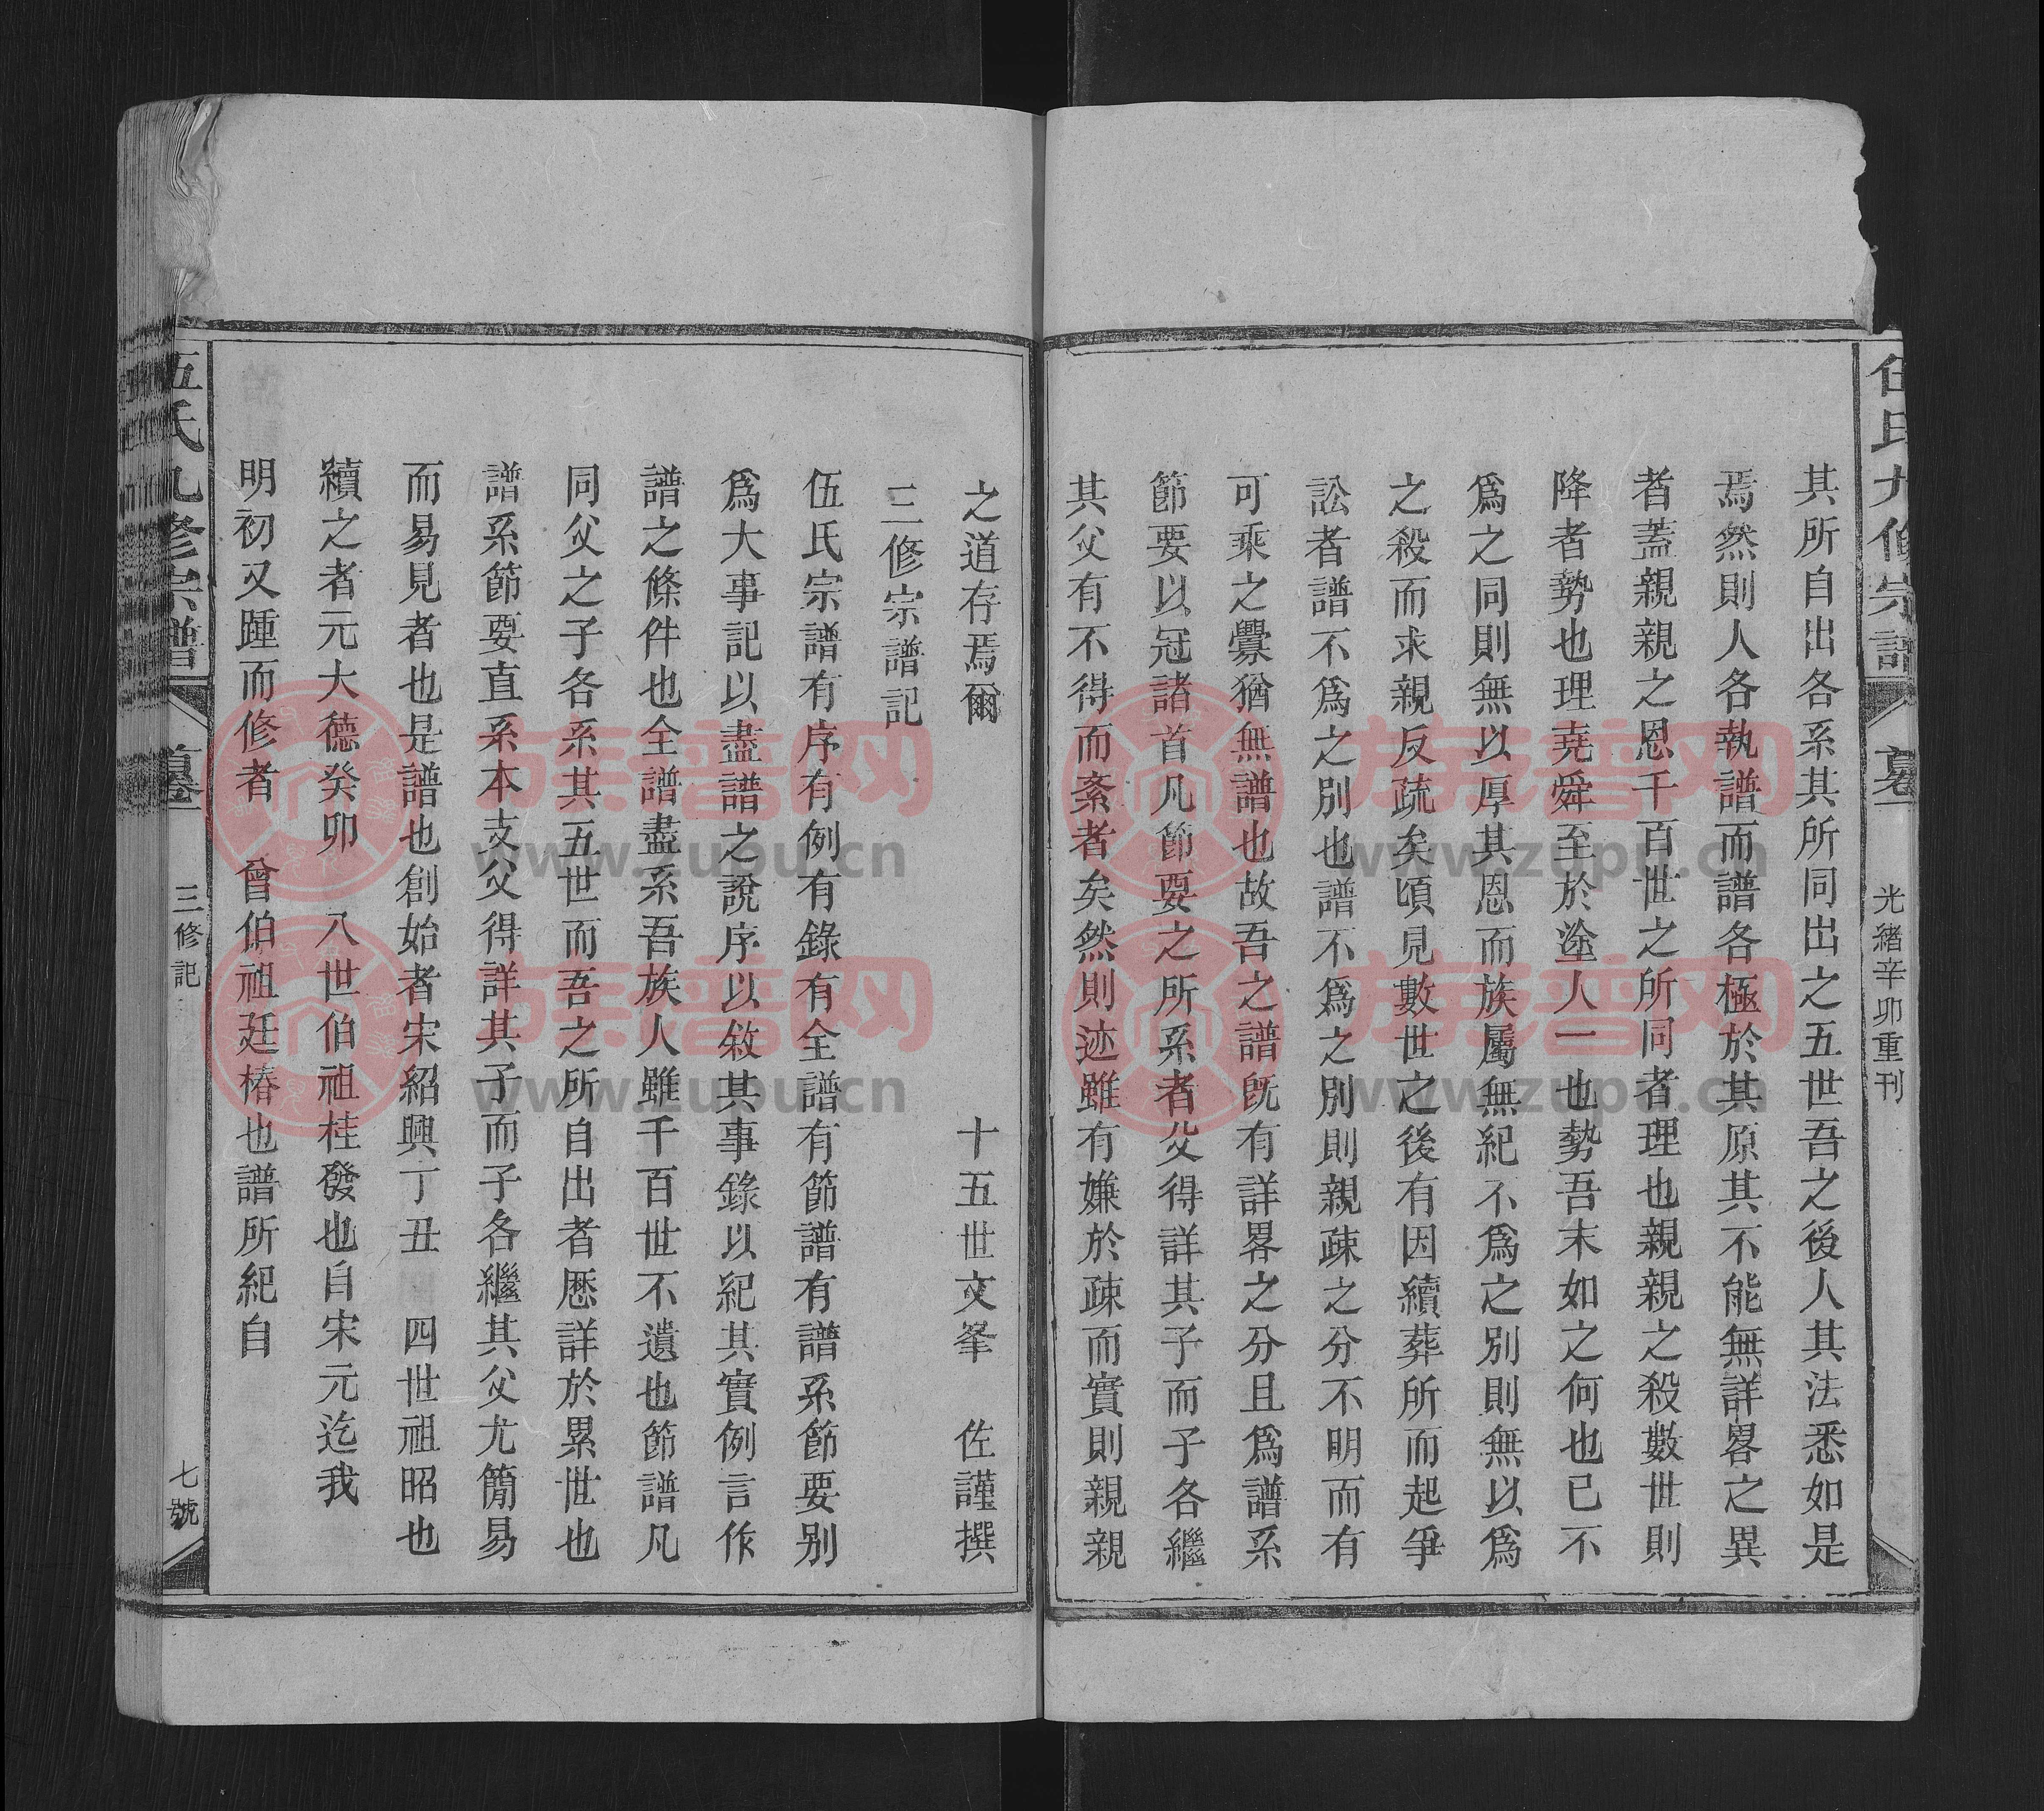 伍氏九修宗譜
卷首
光緒辛卯重刊
其所自出各系其所同出之五世吾之後人其法悉如是
焉然則人各執譜而譜各極於其原其不能無詳畧之異
者蓋親親之恩千百世之所同者理也親親之殺數世則
降者勢也理堯舜至於塗人一也勢吾末如之何也已不
爲之同則無以厚其恩而族屬無紀不爲之別則無以爲
之殺而求親反疏矣頃見數世之後有因續葬所而起爭
訟者譜不爲之別也譜不爲之別則親疎之分不明而有
可乘之釁猶無譜也故吾之譜旣有詳畧之分且爲譜系
節要以冠諸首凡節要之所系者父得詳其子而子各繼
其父有不得而紊者矣然則迹雖有嫌於疎而實則親親
之道存焉爾
十五世文峯 佐謹撰
三修宗譜記
伍氏宗譜有序有例有錄有全譜有節譜有譜系節要別
爲大事記以盡譜之說序以敘其事錄以紀其實例言作
譜之條件也全譜盡系吾族人雖千百世不遺也節譜凡
同父之子各系其五世而吾之所自出者歷詳於累世也
譜系節要直系本支父得詳其子而子各繼其父尤簡易
而易見者也是譜也創始者宋紹興丁丑 四世祖昭也
續之者元大德癸卯 八世伯祖桂發也自宋元迄我
明初又踵而修者 曾伯祖廷椿也譜所紀自
伍氏九修宗譜
三修記
七號
族譜网
www.zupu.cn
族譜网
www.zupu.cn
族譜网
www.zupu.cn
族譜网
www.zupu.cn